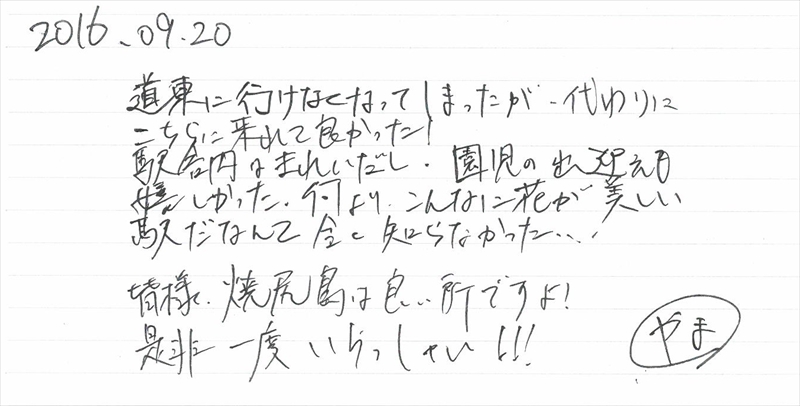 2016.09.20
道東に行けなくなってしまったが、代わりに
こちらに来れて良かった！
駅舎内はきれいだし、園児の出迎えも
嬉しかった。何より、こんなに花が美しい
駅だなんて全く知らなかった...
皆様、焼尻島は良い所ですよ！
是非一度いらっしゃい！！！
やま